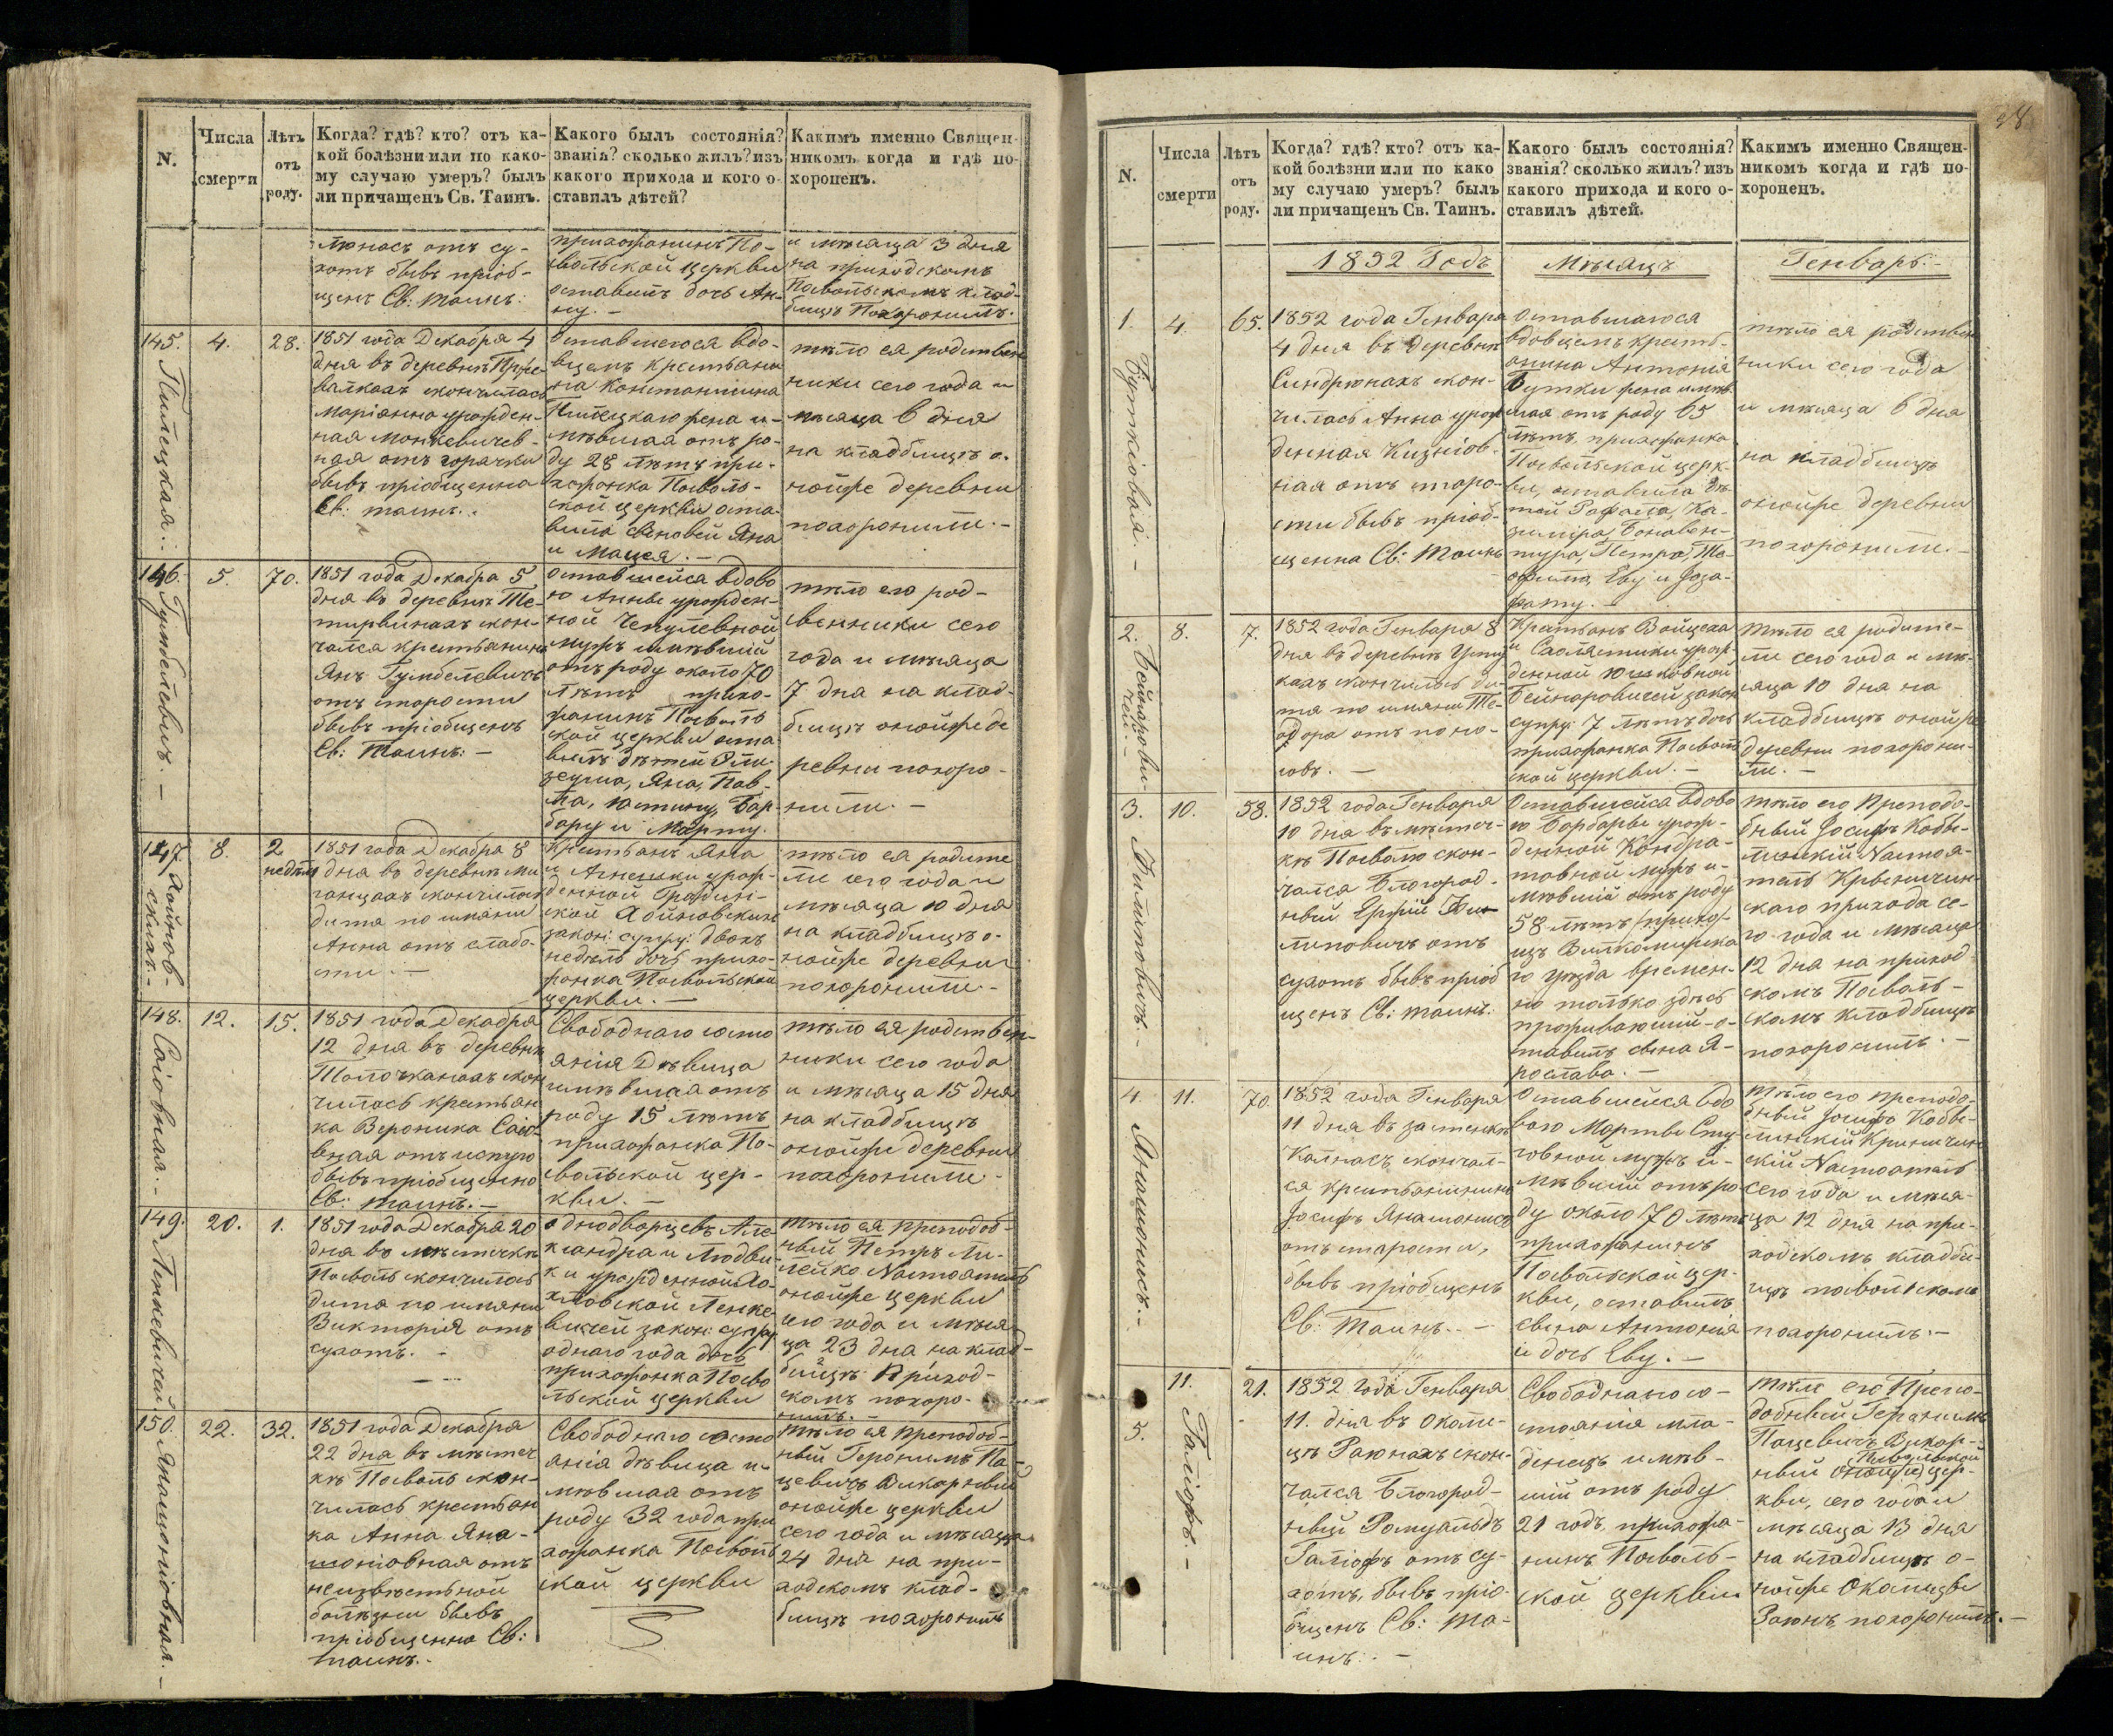 N.
Числа
смерти
Лѣтъ
отъ
роду.
Когда? гдѣ? кто? отъ ка-
кой болѣзни или по како-
му случаю умеръ? былъ
ли причащенъ Св. Таинъ.
Какого былъ состоянія?
званія? сколько жилъ? изъ
какого прихода и кого о-
ставилъ дѣтей?
Какимъ именно Священ-
никомъ когда и гдѣ по-
хороненъ.
отъ су-
хотъ бывъ пріоб-
щенъ Св: Таинъ:
прихожанинъ По-
свольской церкви
оставилъ дочь Ан-
ну. -
и мѣсяца 3 дня
на приходскомъ
Посвольскомъ клад-
бищѣ Похоронилъ.
145.
Пилецкая.
4.
28.
1851 года Декабря 4
дня въ деревнѣ
скончилась
Маріанна урожден-
ная Монкевичев-
ная отъ горячки
бывъ пріобщенна
Св: таинъ.
Оставшегося вдо-
вцемъ крестьяни
на Константина
Пилецкаго жена и-
мѣвшая отъ ро-
ду 28 лѣтъ при-
хожанка Посволь-
ской церкви оста-
вила сыновей Яна
и Мацея. -
тѣло ея родствен
ники сего года и
мѣсяца 6 дня
на кладбищѣ о-
нойже деревни
похоронили. -
146.
Гумбелевичъ. -
5.
70.
1851 года Декабря 5
дня въ деревнѣ Те-
тирвинахъ скон-
чался крестьянинъ
Янъ Гумбелевичъ
отъ старости
бывъ пріобщенъ
Св: Таинъ: -
Оставшейся вдово
ю Анне урожден-
ной Чепулевной
мужъ имѣвшій
отъ роду около 70
лѣтъ прихо-
жанинъ Посволь
ской церкви оста
вилъ дѣтей
Яна, Пав-
ла, Юстину, Бар-
бару и Марту.
тѣло его род-
свенники сего
года и мѣсяца
7 дня на клад-
бищѣ онойже де
ревни похоро-
нили. -
147.
8.
2
недѣли
1851 года Декабря 8
дня въ деревнѣ Ми
ганцахъ скончилась
дитя по имяни
Анна отъ слабо-
сти. -
Крестьянъ Яна
и Агнешки урож-
денной
закон: супру: двохъ
недѣль дочь прихо-
жанка Посвольской
церкви. -
тѣло ея родите
ли сего года и
мѣсяца 10 дня
на кладбищѣ о-
нойже деревни
похоронили -
148.
12.
15.
1851 года Декабря
12 дня въ деревнѣ
скон
чилась крестьян
ка Вероника
отъ испугу
бывъ пріобщенна
Св: таинъ. -
Свободнаго состо
янія Дѣвица
имѣвшая отъ
роду 15 лѣтъ
прихожанка По-
свольской цер-
кви. -
тѣло ея родствен-
ники сего года
и мѣсяца 15 дня
на кладбищѣ
онойже деревни
похоронили -
149.
Пенкевичей
20.
1.
1851 года Декабря 20
дня въ мѣстечкѣ
Посволь скончилась
дитя по имяни
Викторія отъ
сухотъ. -
Однодворцевъ Але-
ксандра и Людви-
ки урожденной
Пенке-
вичей закон: супру
одного года дочь
прихожанка Посво
льской церкви
тѣло ея преподоб-
ный Петръ Ли-
лейко Настоятель
онойже церкви
сего года и мѣся-
ца 23 дня на клад-
бищѣ Приход-
скомъ похоро-
нилъ. -
150.
22.
32.
1851 года Декабря
22 дня въ мѣстеч
кѣ Посволь скон-
чилась крестьян
ка Анна Яна-
шоніовная отъ
неизвѣстной
болѣзни бывъ
пріобщенна Св:
таинъ. -
Свободнаго состо
янія дѣвица и-
мѣвшая отъ
роду 32 года при
хожанка Посволь
ской церкви
тѣло ея преподоб-
ный Геронимъ Па-
цевичъ Викарный
онойже церкви
сего года и мѣсяца
24 дня на при-
ходскомъ клад-
бищѣ похоронилъ
38
N.
Числа
смерти
Лѣтъ
отъ
роду.
Когда? гдѣ? кто? отъ ка-
кой болѣзни или по како
му случаю умеръ? былъ
ли причащенъ Св. Таинъ.
Какого былъ состоянія?
званія? сколько жилъ? изъ
какого прихода и кого о-
ставилъ дѣтей.
Какимъ именно Священ-
никомъ когда и гдѣ по-
хороненъ.
1852 Годъ
Мѣсяцъ
Генварь. -
1.
Буткіовая. -
4.
65.
1852 года Генваря
4 дня въ деревнѣ
Синдрюнахъ скон-
чилась Анна урож
денная
ная отъ старо-
сти бывъ пріоб-
щенна Св: Таинъ
Оставшагося
вдовцемъ кресть-
янина Антонія
Бутки жена имѣв
шая отъ роду 65
лѣтъ, прихожанка
Посвольской церк-
ви, оставила дѣ-
тей Рафала, Ка-
зиміра, Бонавен-
тура, Петра, Те-
офила, Еву и Іоза-
фату. -
тѣло ея родствен
ники сего года
и мѣсяца 6 дня
на кладбищѣ
онойже деревни
похоронили. -
2.
Бейнарови-
чей. -
8.
7.
1852 года Генваря 8
дня въ деревнѣ
кахъ скончилась ди-
тя по имяни Те-
одора отъ поно-
совъ. -
Крестьянъ Войцеха
и Схолястики урож-
денной Юшковной
Бейнаровичей закон
супру: 7 лѣтъ дочь
прихожанка Посволь
ской церкви. -
тѣло ея родите-
ли сего года и мѣ-
сяца 10 дня на
кладбищѣ онойже
деревни похорони-
ли. -
3.
Филиповичъ. -
10.
58.
1852 года Генваря
10 дня въ мѣстеч-
кѣ Посволю скон-
чался Благород-
ный
липовичъ отъ
сухотъ бывъ пріоб
щенъ Св: таинъ.
Оставшейся вдово
ю Барбары урож-
денной Кондра-
товной мужъ и-
мѣвшій отъ роду
58 лѣтъ
Вилкомирска
го уѣзда времен-
но только здѣсь
проживающій - о-
ставилъ сына Я-
рослава. -
тѣло его Преподо-
бный Іосифъ Кобы-
линскій Настоя-
тель Крыничин-
скаго прихода се-
го года и мѣсяца
12 дня на приход
скомъ Посволь-
скомъ кладбищѣ
похоронилъ. -
4.
Янашонисъ. -
11.
70.
1852 года Генваря
11 дня въ застенкѣ
Калнасъ скончал-
ся крестьянинъ
Іосифъ Янашонисъ
отъ старости,
бывъ пріобщенъ
Св: Таинъ. -
Оставшейся вдо
вою Марты
мужъ и-
мѣвшій отъ ро-
ду около 70 лѣтъ
прихожанинъ
Посвольской цер-
кви, оставилъ
сына Антонія
и дочь Еву. -
Тѣло его преподо-
бный Іосифъ Кобы-
линскій Криничин
скій Настоятель
сего года и мѣся-
ца 12 дня на при-
ходскомъ кладби-
щѣ посвольскомъ
похоронилъ. -
5.
Галіофъ. -
11.
21.
1852 года Генваря
11. дня въ Околи-
цѣ Раюнахъ скон-
чался Благород-
ный Ромуальдъ
Галіофъ отъ су-
хотъ, бывъ пріо-
бщенъ Св: Та-
инъ. -
Свободнаго со-
стоянія мла-
денецъ имѣв-
шій отъ роду
21 годъ, прихожа-
нинъ Посволь-
ской церкви
тѣло его Препо-
добный Геронимъ
Пацевичъ Викар-
Посвольской
ный онойже цер-
кви, сего года и
мѣсяца 13 дня
на кладбищѣ о-
нойже Околицы
похоронилъ. -